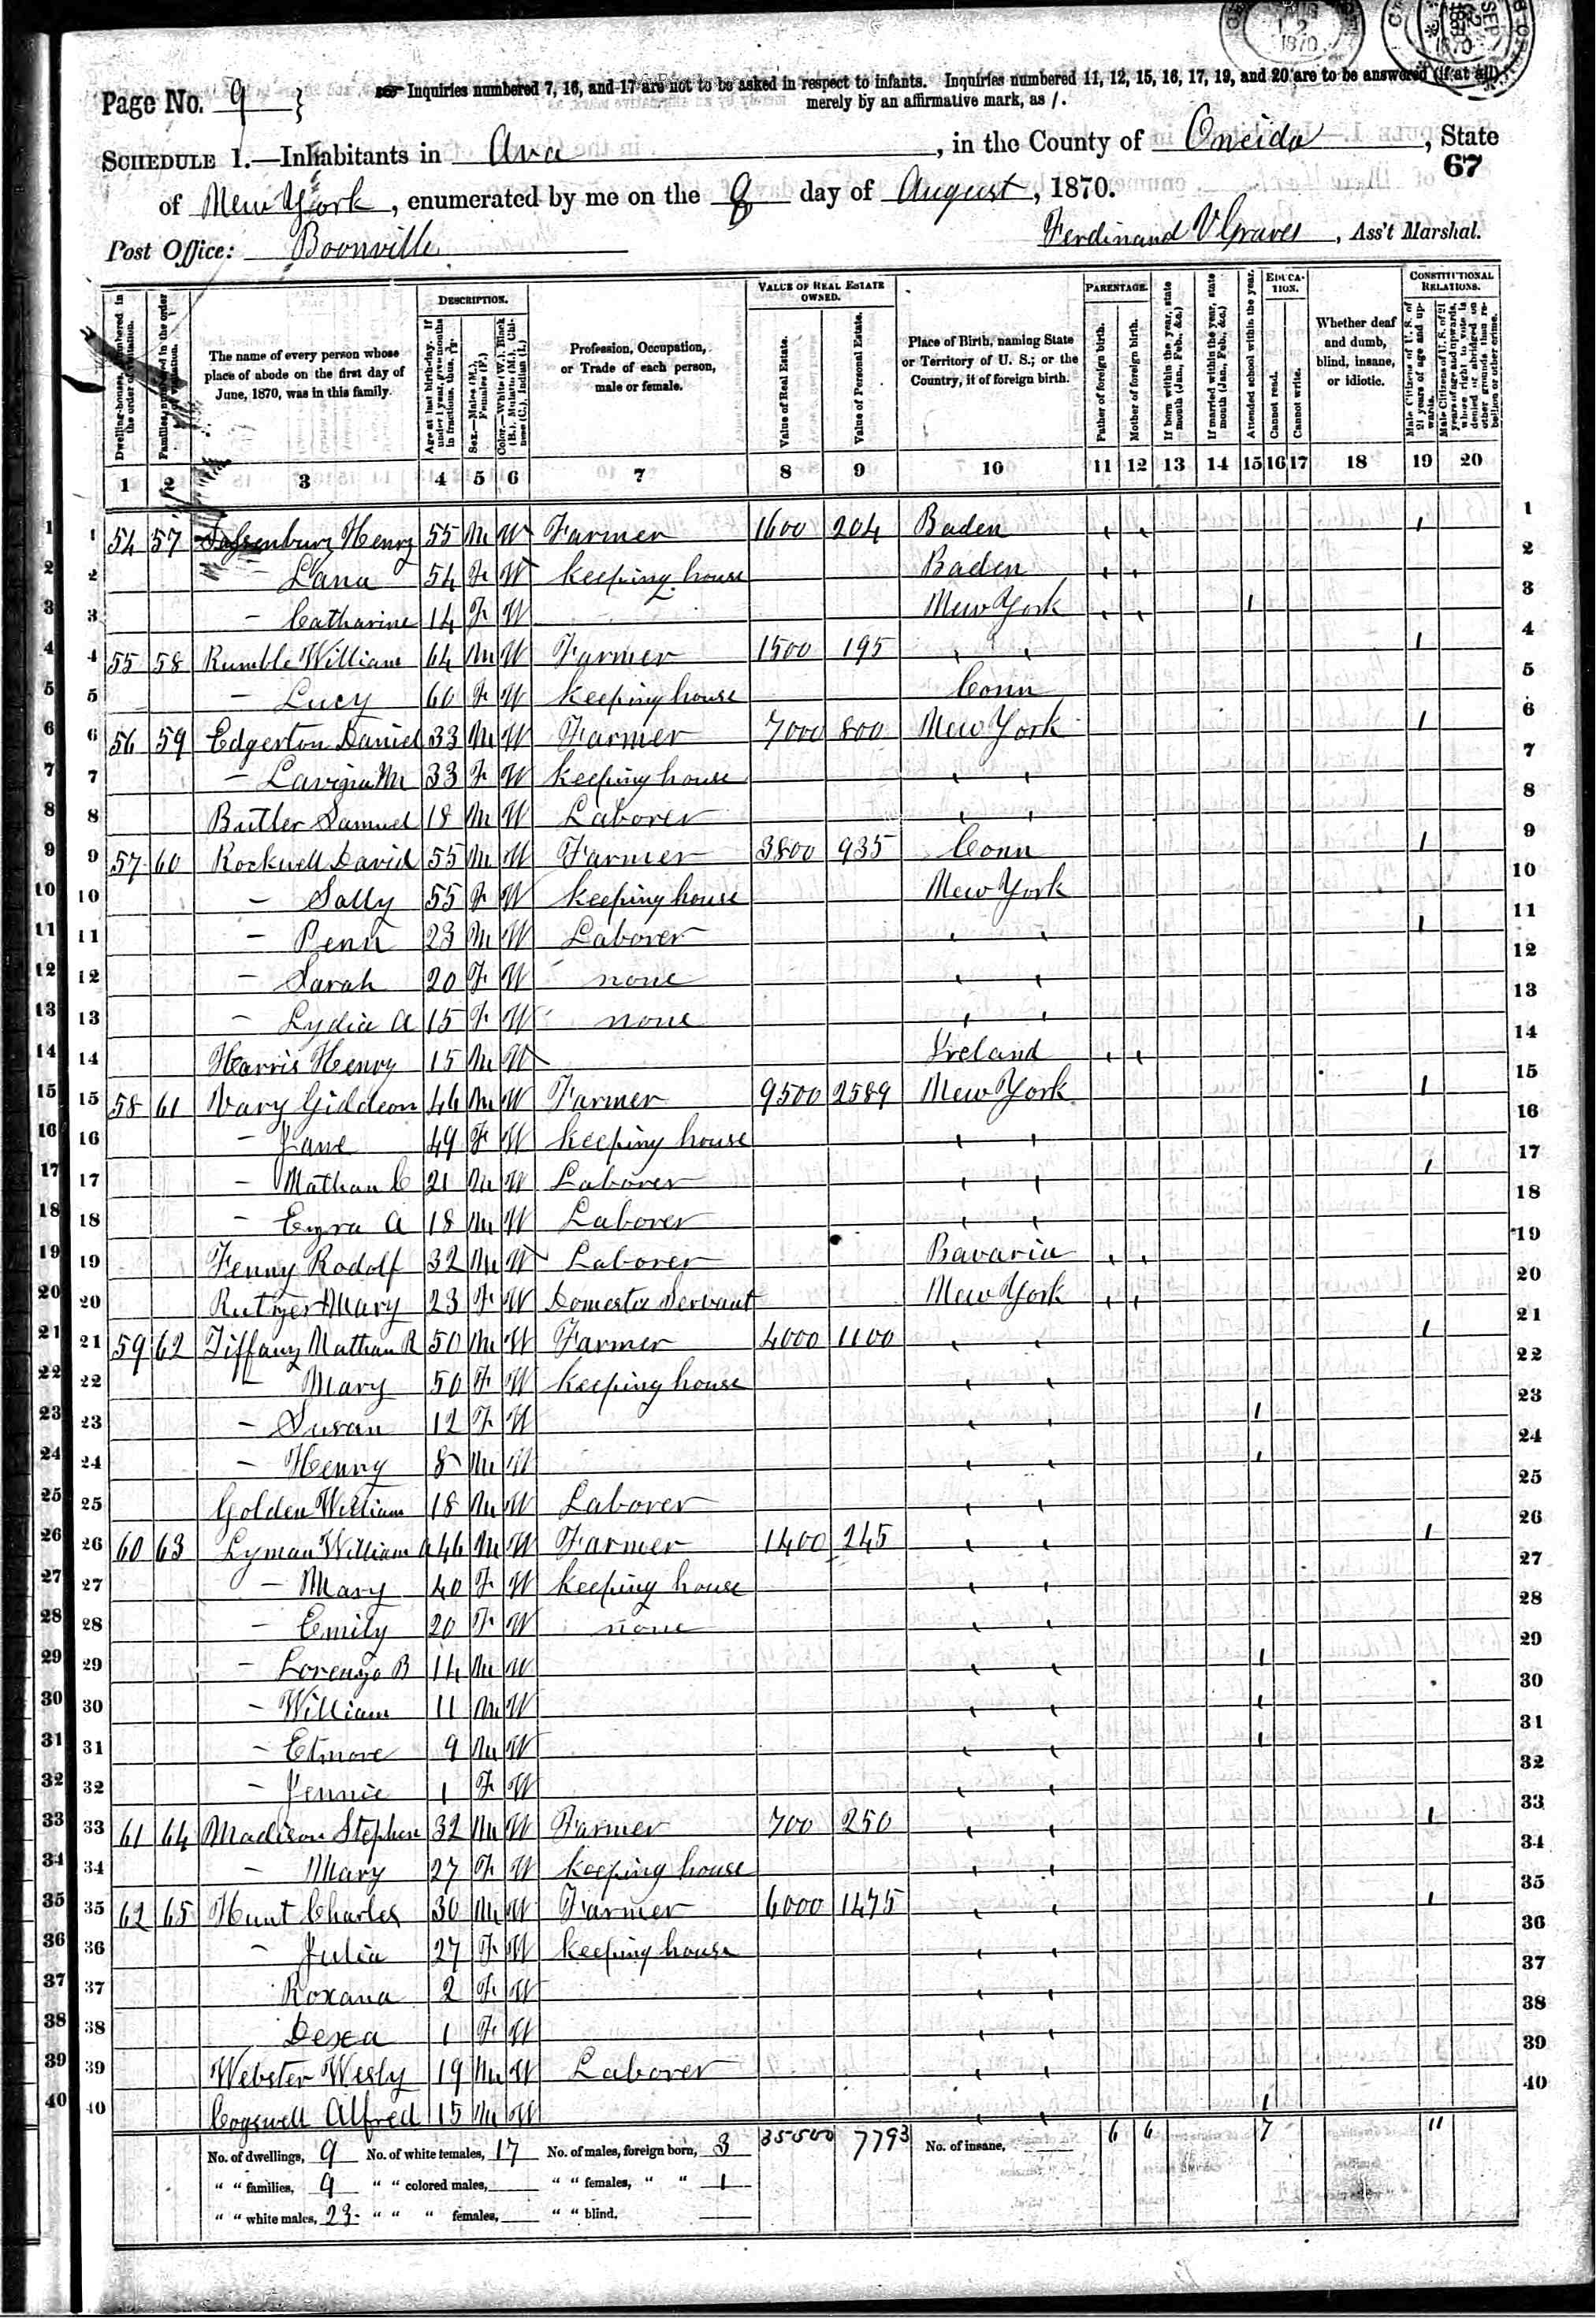 Page No. 9
Inquiries numbered 7, 16, and 17 are not to be asked in respect to infants. Inquiries numbered 11, 12, 15, 16, 17, 19, and 20 are to be answered (if at all)
merely by an affirmative mark, as /.
SCHEDULE 1.—Inhabitants in Ava, in the County of Oneida, State
67
of New York, enumerated by me on the 8 day of August, 1870.
Post Office: Boonville
Ferdinand V Graves, Ass't Marshal.
Dwelling-houses, numbered in the order of visitation.
Families, numbered in the order of visitation.
The name of every person whose place of abode on the first day of June, 1870, was in this family.
DESCRIPTION.
Age at last birth-day. If under 1 year, give months in fractions, thus,
Sex.—Males (M.), Females (F.)
Color.—White (W.), Black (B.), Mulatto (M.), Chinese (C.), Indian (I.)
Profession, Occupation, or Trade of each person, male or female.
VALUE OF REAL ESTATE OWNED.
Value of Real Estate.
Value of Personal Estate.
Place of Birth, naming State or Territory of U. S.; or the Country, if of foreign birth.
PARENTAGE.
Father of foreign birth.
Mother of foreign birth.
If born within the year, state month (Jan., Feb., &c.)
If married within the year, state month (Jan., Feb., &c.)
Attended school within the year.
EDUCATION.
Cannot read.
Cannot write.
Whether deaf and dumb, blind, insane, or idiotic.
CONSTITUTIONAL RELATIONS.
Male Citizens of U. S. of 21 years of age and upwards.
Male Citizens of U. S. of 21 years of age and upwards, whose right to vote is denied or abridged on other grounds than rebellion or other crime.
1 2 3 4 5 6 7 8 9 10 11 12 13 14 15 16 17 18 19 20
1 54 57 Henry 55 M W Farmer 1600 204 Baden / / / 1
2 — Lana 54 F W Keeping house Baden / / 2
3 — Catharine 14 F W New York / / / 3
4 55 58 Rumble William 64 M W Farmer 1500 195 " " / 4
5 — Lucy 60 F W Keeping house Conn 5
6 56 59 Edgerton Daniel 33 M W Farmer 7000 800 New York / 6
7 — Lavina M 33 F W Keeping house " " 7
8 Butler Samuel 18 M W Laborer " " 8
9 57 60 Rockwell David 55 M W Farmer 3800 935 Conn / 9
10 — Sally 55 F W Keeping house New York 10
11 — Penn 23 M W Laborer " " / 11
12 — Sarah 20 F W none " " 12
13 — Lydia A 15 F W none " " 13
14 Harris Henry 15 M W Ireland / / 14
15 58 61 Vary Giddeon 46 M W Farmer 9500 2589 New York / 15
16 — Jane 49 F W Keeping house " " 16
17 — Nathan C 21 M W Laborer " " / 17
18 — Ezra A 18 M W Laborer " " 18
19 Fenny Rodolf 32 M W Laborer Bavaria / / 19
20 Rutger Mary 23 F W Domestic Servant New York / / 20
21 59 62 Tiffany Nathan R 50 M W Farmer 4000 1100 " " / 21
22 — Mary 50 F W Keeping house " " 22
23 — Susan 12 F W " " / 23
24 — Henry 8 M W " " / 24
25 Golden William 18 M W Laborer " " 25
26 60 63 Lyman William A 46 M W Farmer 1400 245 " " / 26
27 — Mary 40 F W Keeping house " " 27
28 — Emily 20 F W none " " 28
29 — Lorenzo B 14 M W " " / 29
30 — William 11 M W " " / 30
31 — Elmore 9 M W " " / 31
32 — Jennie 1 F W " " 32
33 61 64 Madison Stephen 32 M W Farmer 700 250 " " / 33
34 — Mary 27 F W Keeping house " " 34
35 62 65 Hunt Charles 30 M W Farmer 6000 1475 " " / 35
36 — Julia 27 F W Keeping house " " 36
37 Roxana 2 F W " " 37
38 Dexea 1 F W " " 38
39 Webster Wesly 19 M W Laborer " " 39
40 Cogswell Alfred 15 M W " " / 40
No. of dwellings, 9 No. of white females, 17 No. of males, foreign born, 3 35500 7793 No. of insane, 6 6 7 11
" " families, 9 " " colored males, " " females, " " 1
" " white males, 23 " " " females, " " blind,